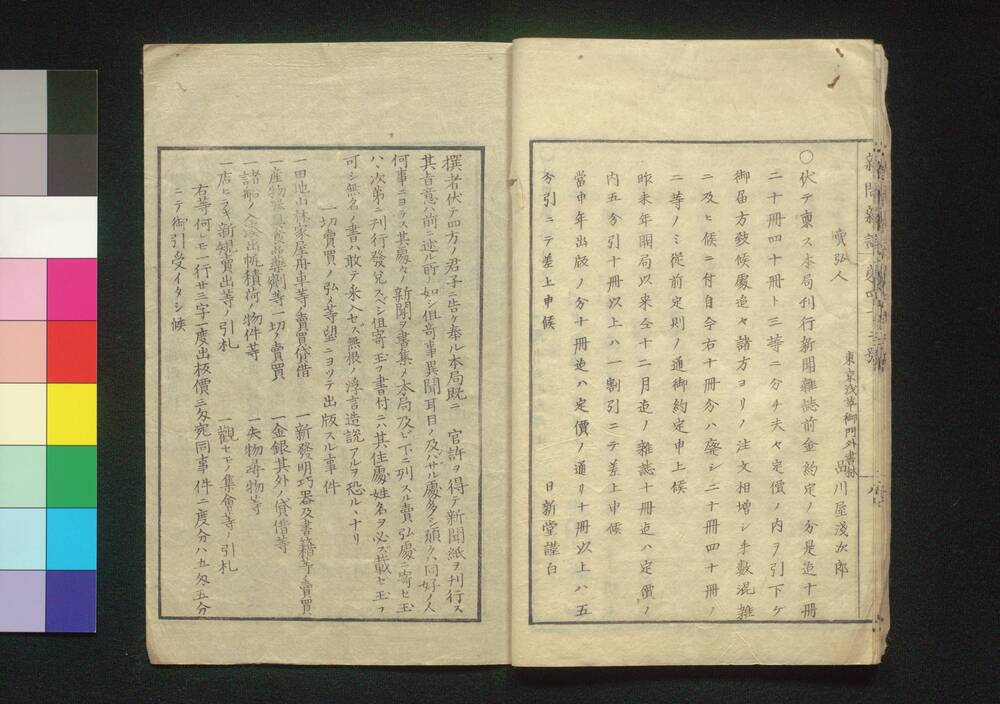 賣弘人
東京淺草御門外書林
品川屋淺次郎
〇伏テ禀ス本局刊行新聞雜誌前金約定ノ分是迄十冊
二十冊四十冊ト三等ニ分チ夫々定價ノ内ヲ引下ケ
御届方致候處追々諸方ヨリノ注文相増シ手數混雜
ニ及ヒ候ニ付自今右十冊分ハ廢シ二十冊四十冊ノ
二等ノミ從前定則ノ通御約定申上候
昨未年開局以来全十二月迄ノ雜誌十冊迄ハ定價ノ
内五分引十冊以上ハ一割引ニテ差上申候
當申年出版ノ分十冊迄ハ定價ノ通リ十冊以上ハ五
分引ニテ差上申候
日新堂謹白
撰者伏テ四方ノ君子ニ告ケ奉ル本局既ニ 官許ヲ得テ新聞紙ヲ刊行ス
其旨意ハ前ニ述ル所ノ如シ但竒事異聞耳目ノ及バサル處多シ頒クハ同好ノ人
何事ニヨラス其處々ノ新聞ヲ書集メ本局及ビ下ニ列スル賣弘處ニ寄セ玉
ハヽ次第ニ刊行發兌スベシ但寄玉フ書付ニハ其住處姓名ヲ必ズ載セ玉フ
可シ無名ノ書ハ敢テ采入セズ無根ノ浮言造説アルヲ恐ルヽナリ
一切賣買ノ弘メ等望ニヨツテ出版スル事件
一田地山林家屋舟車等ノ賣買貸借
一新發明巧器及書籍等ノ賣買
一産物器具食品藥劑等一切ノ賣買
一金銀其外ノ貸借等
一諸船ノ入港出帆積荷ノ物件等
一失物尋物等
一店ヒラキ新規賣出等ノ引札
一觀セモノ集會等ノ引札
右等何レモ一行廿三字一度出板價三匁宛同事件二度分ハ五匁五分
ニテ御引受イタシ候